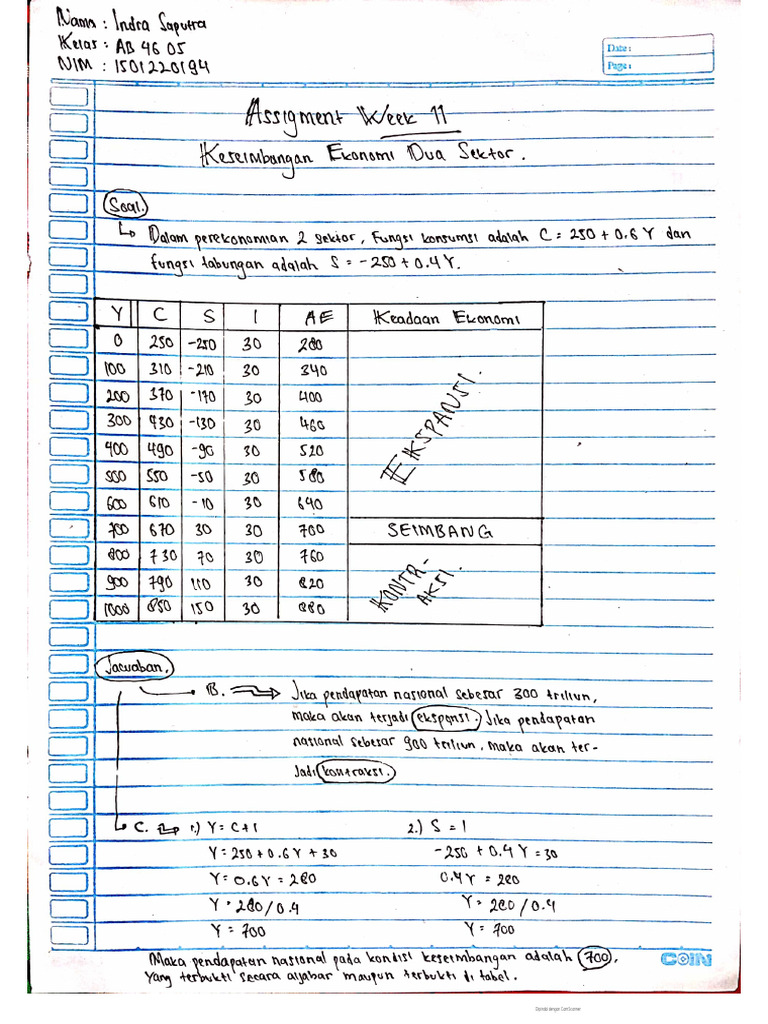 Nama : Indra Saputra
Kelas : AB 46 05
NIM : 1501220194
Date :
Page :
Assigment Week 11
Keseimbangan Ekonomi Dua Sektor.
Soal.
↳ Dalam perekonomian 2 sektor, fungsi konsumsi adalah C = 250 + 0.6 Y dan
fungsi tabungan adalah S = -250 + 0.4 Y.
Y C S I AE Keadaan Ekonomi
0 250 -250 30 280
100 310 -210 30 340
200 370 -170 30 400
300 430 -130 30 460
400 490 -90 30 520
500 550 -50 30 580
600 610 -10 30 640
EKSPANSI.
700 670 30 30 700 SEIMBANG
800 730 70 30 760
900 790 110 30 820
1000 850 150 30 880
KONTR-
AKSI.
Jawaban.
B. ⇒ Jika pendapatan nasional sebesar 300 triliun,
maka akan terjadi ekspansi. Jika pendapatan
nasional sebesar 900 triliun, maka akan ter-
jadi kontraksi.
C. ⇒ 1.) Y = C + I 2.) S = I
Y = 250 + 0.6 Y + 30 -250 + 0.4 Y = 30
Y = 0.6 Y = 280 0.4 Y = 280
Y = 280 / 0.4 Y = 280 / 0.4
Y = 700 Y = 700
Maka pendapatan nasional pada kondisi keseimbangan adalah 700,
yang terbukti secara aljabar maupun terbukti di tabel.
COIN
Dipindai dengan CamScanner